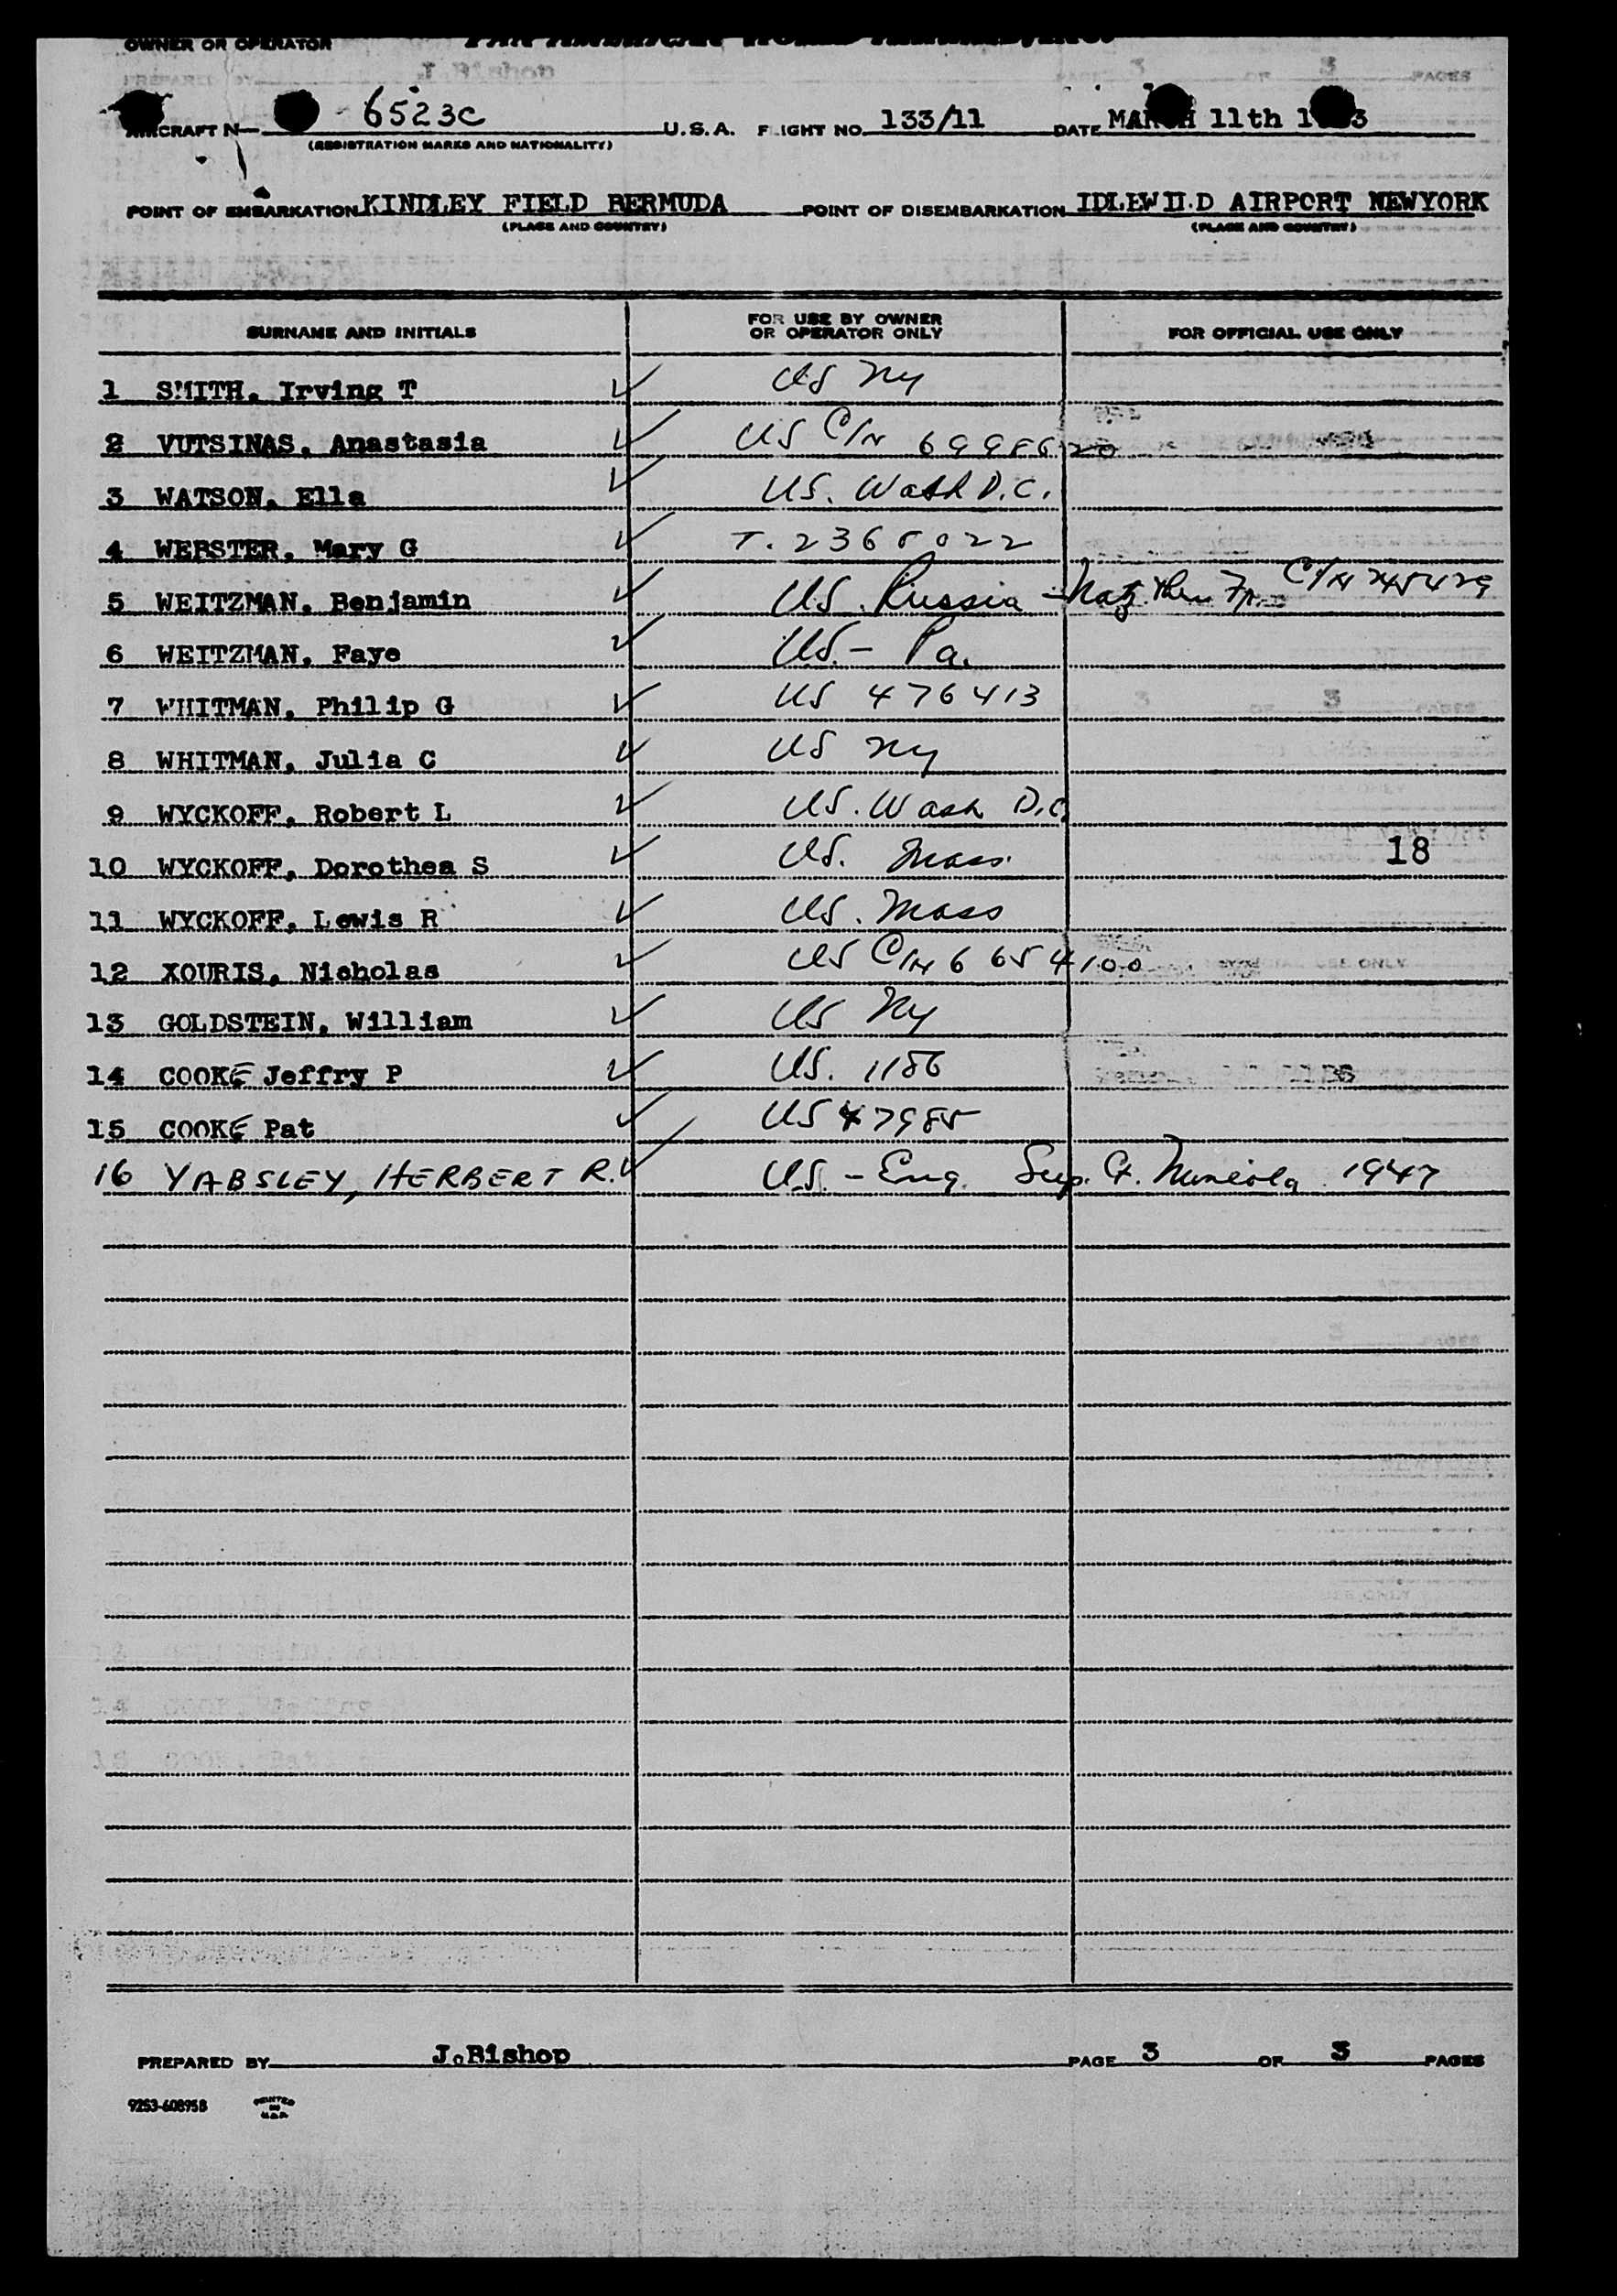 OWNER OR OPERATOR PAN AMERICAN WORLD
AIRCRAFT N— 6523C U.S.A. FLIGHT NO. 133/11 DATE MARCH 11th
(REGISTRATION MARKS AND NATIONALITY)
POINT OF EMBARKATION KINDLEY FIELD BERMUDA POINT OF DISEMBARKATION IDLEWILD AIRPORT NEWYORK
(PLACE AND COUNTRY) (PLACE AND COUNTRY)
SURNAME AND INITIALS FOR USE BY OWNER OR OPERATOR ONLY FOR OFFICIAL USE ONLY
1 SMITH, Irving T ✓ US NY
2 VUTSINAS, Anastasia ✓ US C/N 6998620
3 WATSON, Ella ✓ US. Wash D.C.
4 WEBSTER, Mary G ✓ T. 2368022
5 WEITZMAN, Benjamin ✓ US. Russia - Natz thru C/N 245429
6 WEITZMAN, Faye ✓ US. - Pa.
7 WHITMAN, Philip G ✓ US 476413
8 WHITMAN, Julia C ✓ US NY
9 WYCKOFF, Robert L ✓ US. Wash D.C.
10 WYCKOFF, Dorothea S ✓ US. Mass. 18
11 WYCKOFF, Lewis R ✓ US. Mass
12 XOURIS, Nicholas ✓ US C/N 6654100
13 GOLDSTEIN, William ✓ US NY
14 COOKE Jeffry P ✓ US. 1186
15 COOKE Pat ✓ US 47985
16 YABSLEY, HERBERT R. ✓ U.S. - Eng. Sup. Ct. Mineola 1947
PREPARED BY J.Bishop PAGE 3 OF 3 PAGES
9253-608958 PRINTED IN U.S.A.